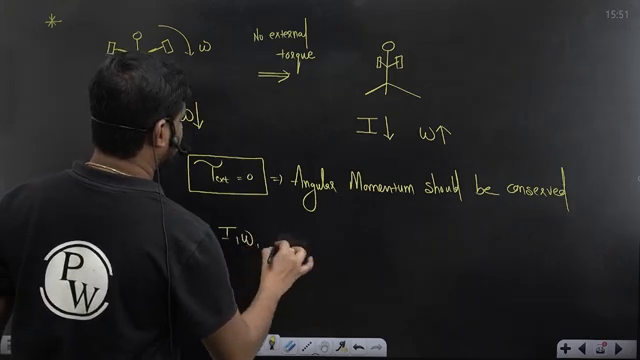 * 15:51
ω No external torque ⇒
ω↓ I↓ ω↑
τext = 0 ⇒ Angular Momentum should be conserved
I₁ω₁
P
W